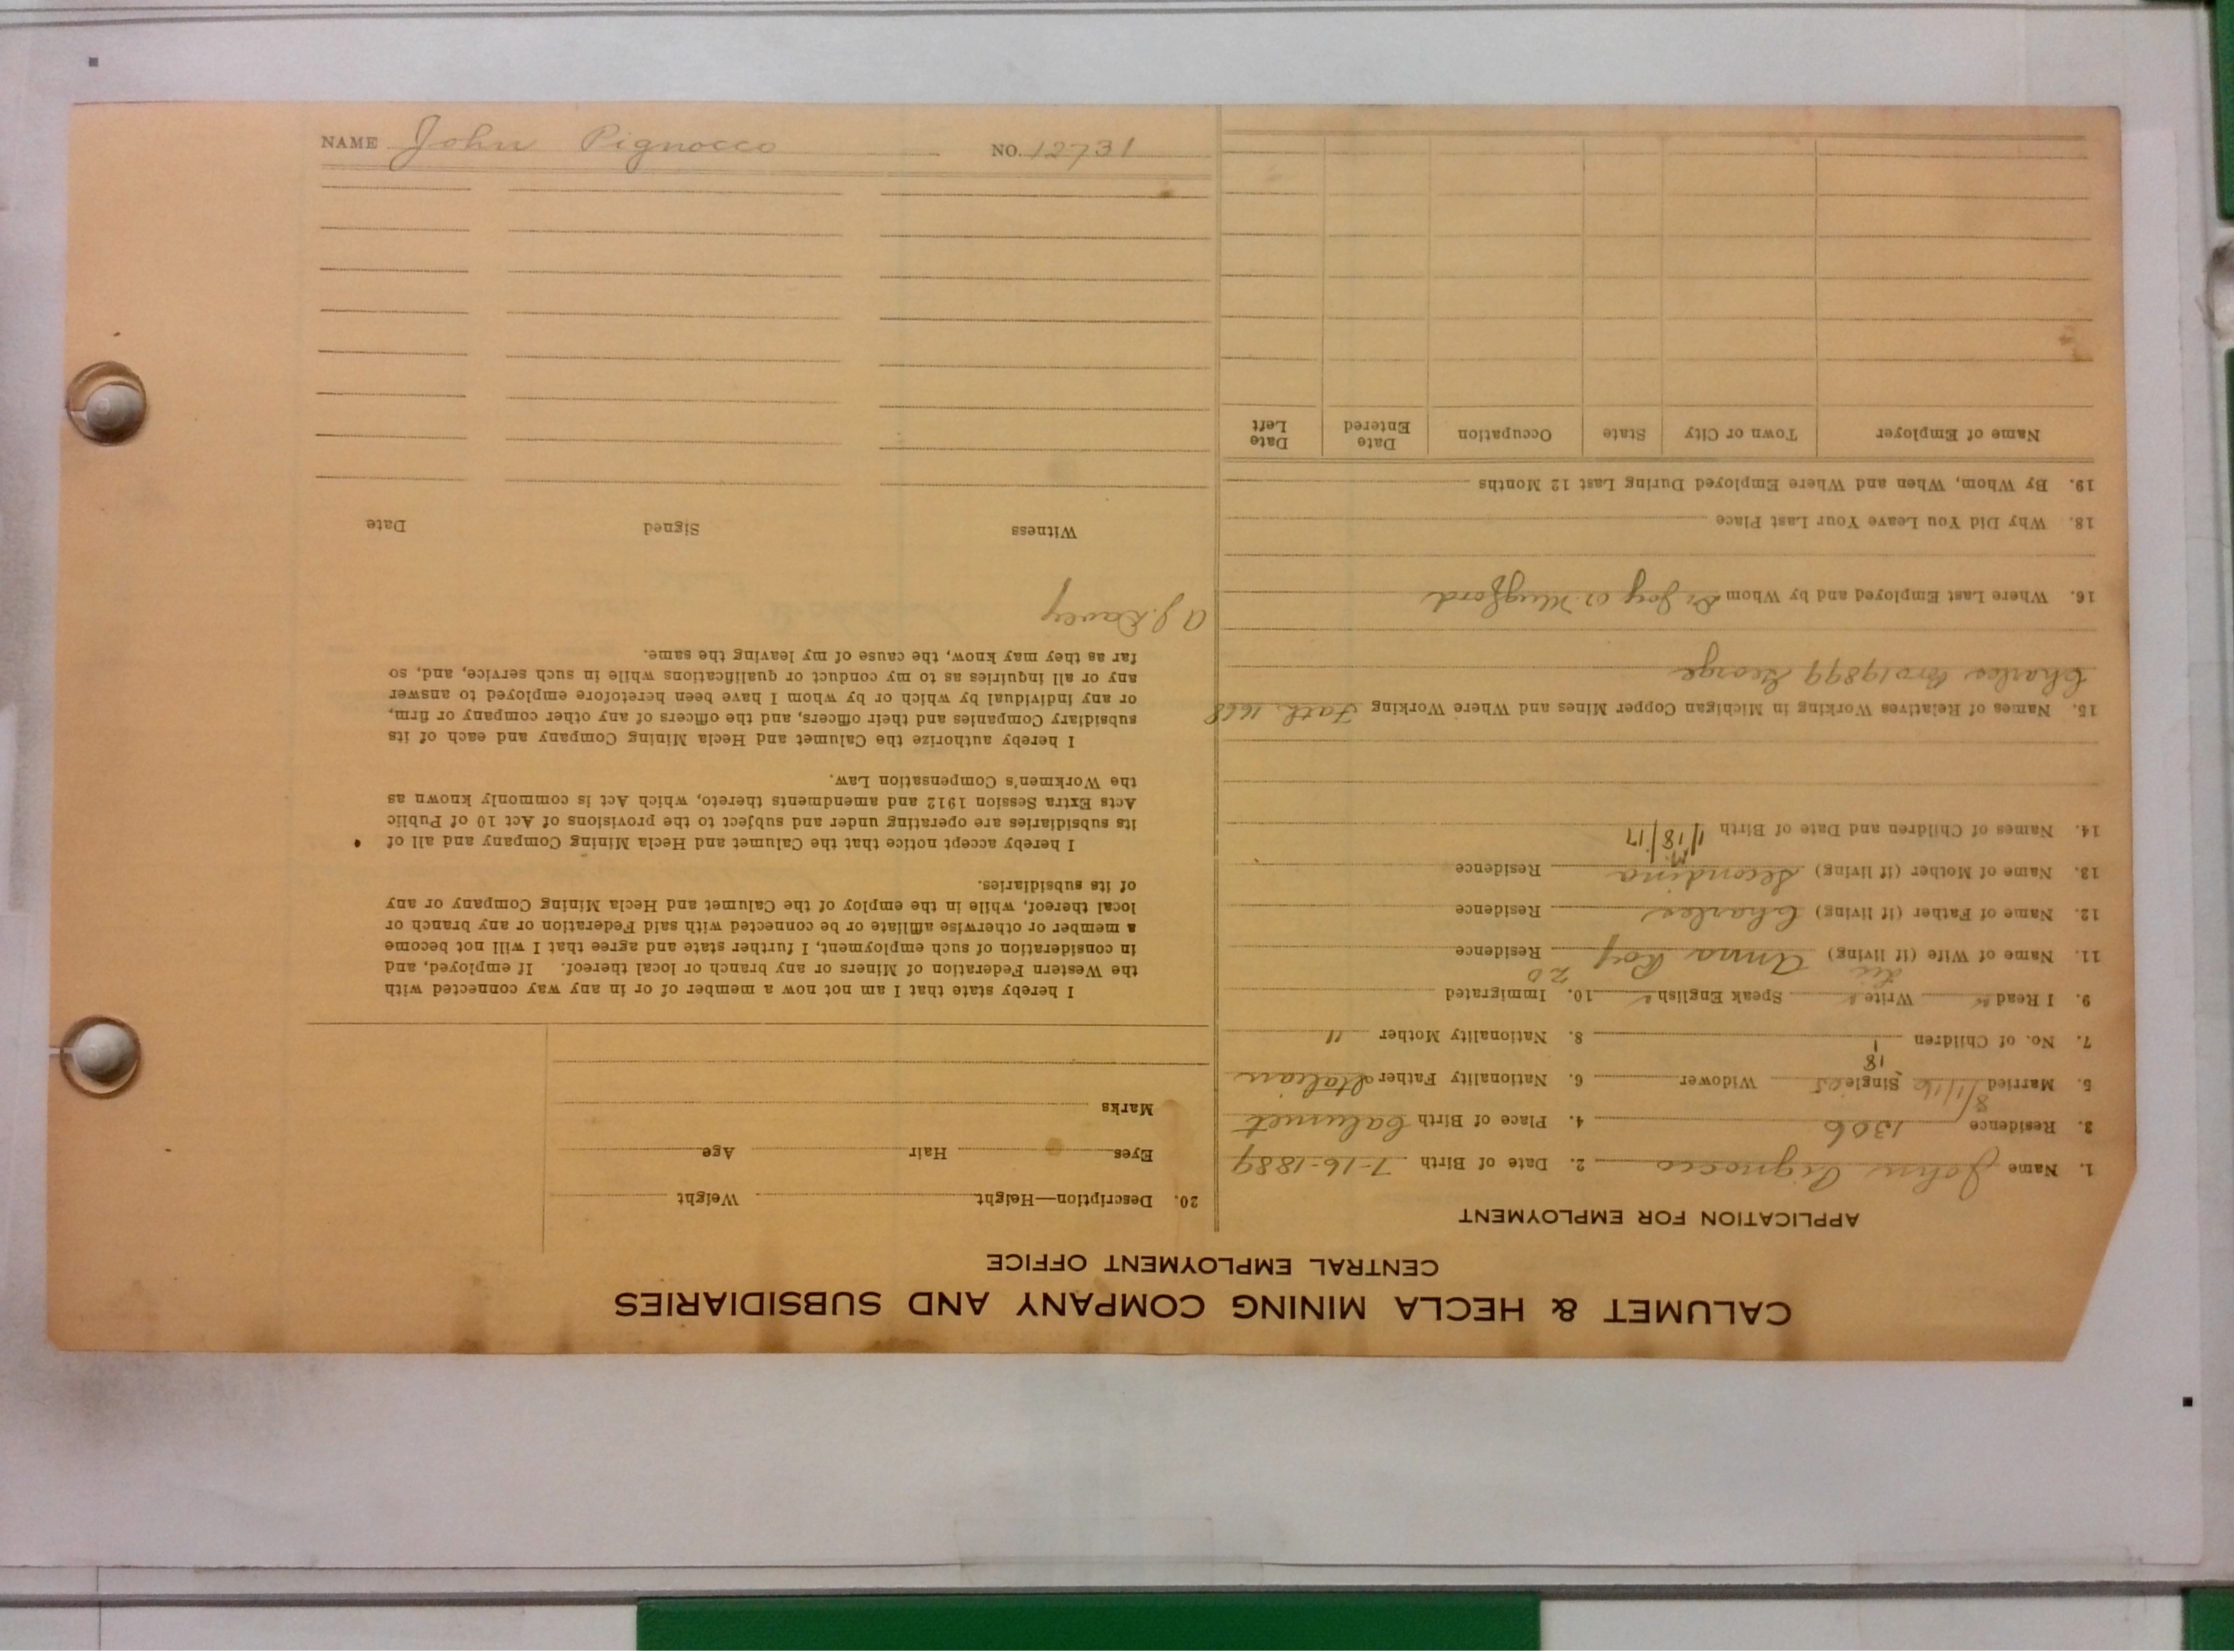 CALUMET & HECLA MINING COMPANY AND SUBSIDIARIES
CENTRAL EMPLOYMENT OFFICE
APPLICATION FOR EMPLOYMENT
1. Name John Pignocco 2. Date of Birth 7-16-1889
3. Residence 1306 4. Place of Birth Calumet
5. Married 8/1/16 Single Widower 6. Nationality Father Italian
18
7. No. of Children 1 8. Nationality Mother "
9. I Read Write Speak English 10. Immigrated
20
11. Name of Wife (if living) Anna Roy Residence
12. Name of Father (if living) Charles Residence
13. Name of Mother (if living) Secondina Residence
14. Names of Children and Date of Birth M 1/18/17
15. Names of Relatives Working in Michigan Copper Mines and Where Working Fath. 1668
Charles Bro 19899 George
16. Where Last Employed and by Whom
18. Why Did You Leave Your Last Place
19. By Whom, When and Where Employed During Last 12 Months
Name of Employer Town or City State Occupation Date Entered Date Left
20. Description—Height Weight
Eyes Hair Age
Marks
I hereby state that I am not now a member of or in any way connected with
the Western Federation of Miners or any branch or local thereof. If employed, and
in consideration of such employment, I further state and agree that I will not become
a member or otherwise affiliate or be connected with said Federation or any branch or
local thereof, while in the employ of the Calumet and Hecla Mining Company or any
of its subsidiaries.
I hereby accept notice that the Calumet and Hecla Mining Company and all of
its subsidiaries are operating under and subject to the provisions of Act 10 of Public
Acts Extra Session 1912 and amendments thereto, which Act is commonly known as
the Workmen's Compensation Law.
I hereby authorize the Calumet and Hecla Mining Company and each of its
subsidiary Companies and their officers, and the officers of any other company or firm,
or any individual by which or by whom I have been heretofore employed to answer
any or all inquiries as to my conduct or qualifications while in such service, and, so
far as they may know, the cause of my leaving the same.
A J. Davey
Witness Signed Date
NAME John Pignocco NO. 12731